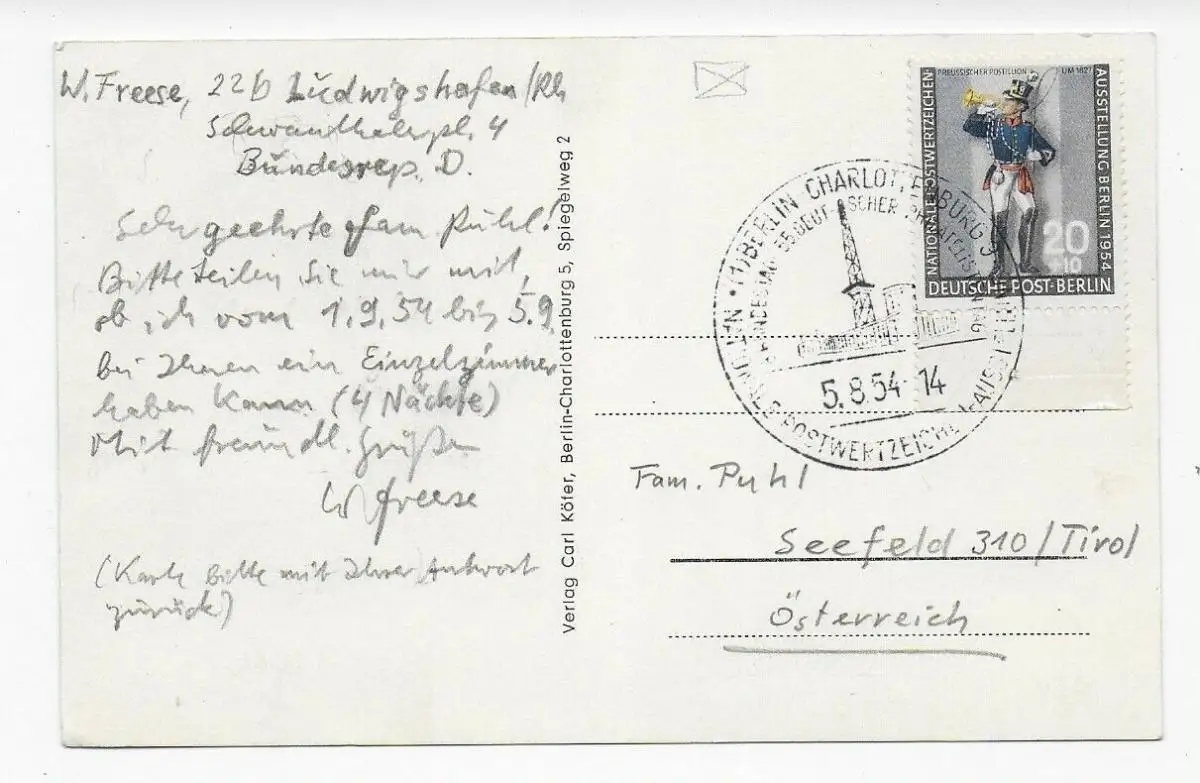 W. Freese, 22b Ludwigshafen/Rh
Schwanthalerpl. 4
Bundesrep. D.
Sehr geehrte Fam Puhl!
Bitte teilen Sie mir mit,
ob ich vom 1.9.54 bis 5.9.
bei Ihnen ein Einzelzimmer
haben kann (4 Nächte)
Mit freundl. Grüßen
W Freese
(Karte bitte mit Ihrer Antwort
zurück)
Verlag Carl Köfer, Berlin-Charlottenburg 5, Spiegelweg 2
PREUSSISCHER POSTILLION UM 1827
NATIONALE POSTWERTZEICHEN-
AUSSTELLUNG BERLIN 1954
20
+10
DEUTSCHE POST·BERLIN
(1) BERLIN CHARLOTTENBURG 5
5.8.54-14
Fam. Puhl
Seefeld 310/Tirol
Österreich